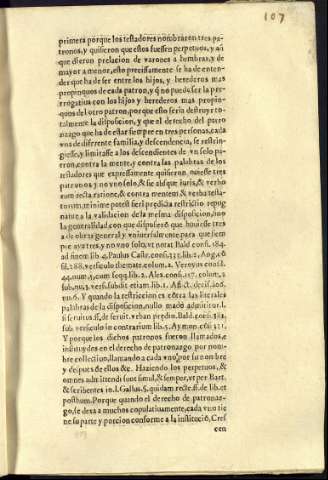 107
primera porque los testadores nombraron tres pa-
tronos, y quisieron que estos fuessen perpetuos, y aũ
que dieron prelacion de varones a hembras, y de
mayor a menor, esto precisamente se ha de enten-
der que ha de ser entre los hijos, y herederos mas
propinquos de cada patron, y q̃ no puede ser la per-
rogatiua con los hijos y herederos mas propin-
quos del otro patron, porque esto seria destruyr to-
talmente la disposicion, y que el derecho del patro
nazgo que ha de estar siempre en tres personas, cada
vna de diferente familia, y descendencia, se restrin-
giesse, y limitasse a los descendientes de vn solo pa-
tron, contra la mente, y contra las palabras de los
testadores que expressamente quisieron, vuiesse tres
patronos y no vno solo, & sic absque iuris, & verbo
rum recta ratione, & contra mentem & verba testa-
torum, minime potest fieri prædicta restrictio repug
nante a la validacion de la mesma disposicion, con
la generalidad, con que dispuso q̃ que houiesse tres
a de obrar general y vniuersalmente para que siem
pre aya tres, y no vno solo, vt notat Bald. cons. 184.
ad finem lib. 4. Paulus Castr. cons. 335. lib. 2, Ang. cõ
sil. 288. versiculo themate, colum. 2. Veroyus cons.
44. num. 5. cum seqq. lib. 2. Alex. cons. 117. colum. 2
sub, nu. 3. vers. subdit etiam. lib. 1. Afflict. decis. 206.
nu. 6. Y quando la restriccion es cõtra las literales
palabras de la disposicion, nullo modo admititur. l.
si seruitus. ff. de seruit. vrban. prædio. Bald. cons. 382.
sub. versiculo in contrarium lib. 5. Aymon. cõs. 321.
Y porque los dichos patronos fueron llamados, e
instituydos en el derecho de patronazgo por nom-
bre collectiuo, llamando a cada vno por su nombre
y despues de ellos &c. Haziendo los perpetuos, &
omnes admittendi sunt simul, & semper, vt per Bart.
& scribentes in l. Gallus. §. quidam recte. ff. de lib. et
posthum. Porque quando el derecho de patronaz-
go, se dexa a muchos copulatiuamente, cada vno tie
ne su parte y porcion conforme a la instituciõ, Cres
cen